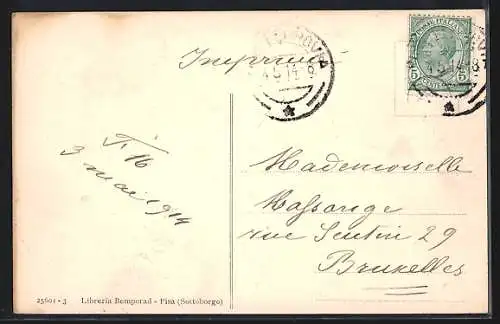 Imprimé
4.5.14
POSTE ITALIANE
5 5
CENT.
3 mai 1914
Mademoiselle
Massange
rue Sentin 29
Bruxelles
25601 - 3 Libreria Bemporad - Pisa (Sottoborgo)